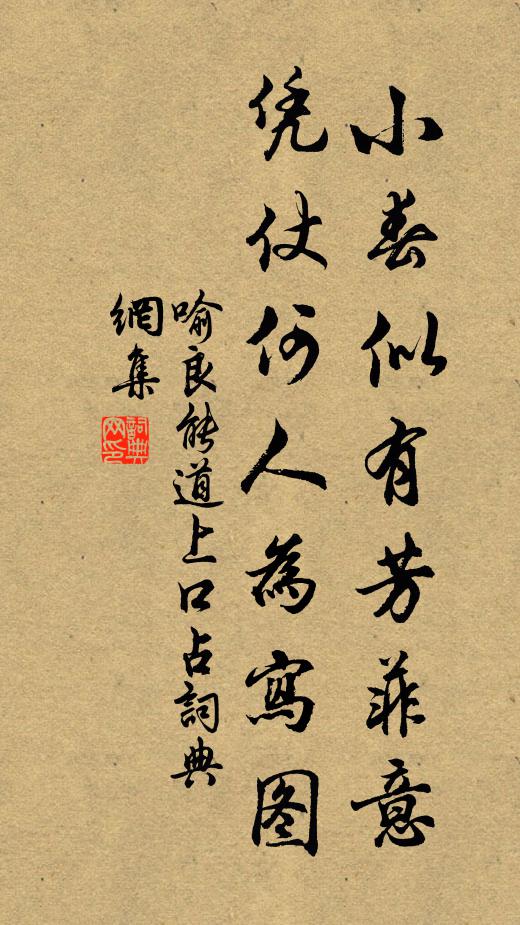 小春似有芳菲意
凭仗何人為寫图
喻良能道上口占詞典
網集
詞典
网印